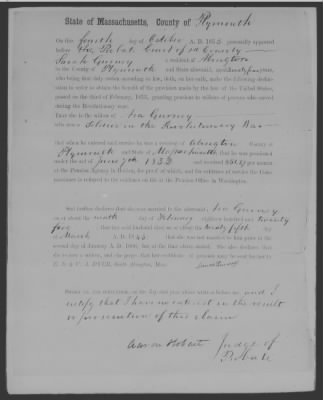 State of Massachusetts, County of Plymouth
On this fourth day of October A. D. 1853, personally appeared
before the Probate Court of said County
Sarah Gurney a resident of Abington
in the County of Plymouth and State aforesaid, aged years,
who being first duly sworn according to law, doth, on her oath, make the following
declaration in order to obtain the benefit of the provision made by the law of the United States,
passed on the third of February, 1853, granting pensions to widows of persons who served
during the Revolutionary war:
That she is the widow of Asa Gurney
who was a Soldier in the Revolutionary War
that when he entered said service he was a resident of Abington
Plymouth and State of Massachusetts that he was pensioned
under the act of June 7th 1832 and received per annum
at the Pension Agency in Boston, for proof of which, and the evidence of service the Com-
missioner is referred to the evidence on file at the Pension Office in Washington.
She further declares that she was married to the aforesaid Asa Gurney
on or about the ninth day of February eighteen hundred and twenty
that her said husband died on or about the twenty fifth day
of March A. D. that she was not married to him prior to the
second day of January A. D. 1800, but at the time above stated. She also declares that
she is now a widow, and she prays that her certificate of pension may be sent her to
DYER, South Abington, Mass.
Sworn to and subscribed, on the day and year above written before me and I
certify that I have no interest in the result
or prosecution of this claim
Aaron Hobart Judge of
Probate